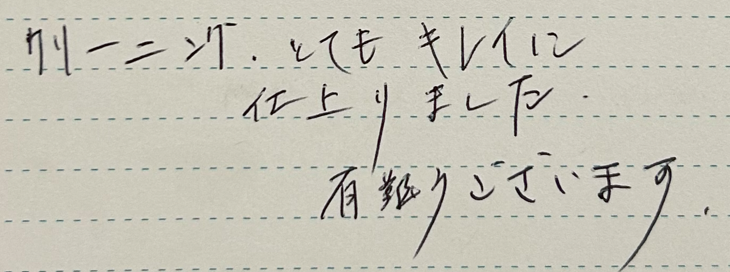 クリーニング.とてもキレイに
仕上りました.
有難うございます.